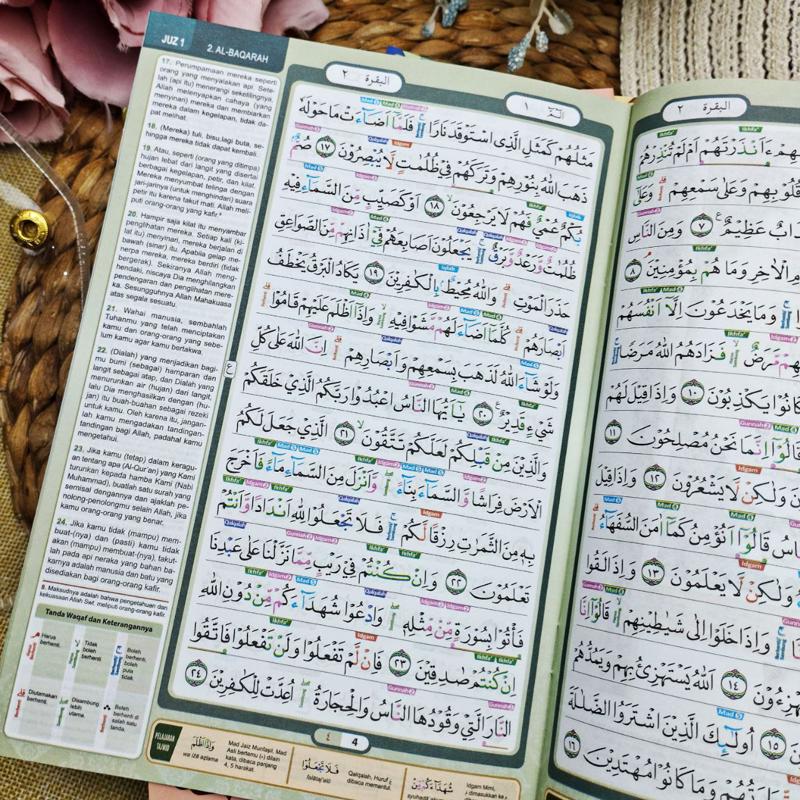 JUZ 1
2. AL-BAQARAH
17. Perumpamaan mereka seperti
orang yang menyalakan api. Sete-
lah (api itu) menerangi sekelilingnya,
Allah melenyapkan cahaya (yang
menyinari) mereka dan membiarkan
mereka dalam kegelapan, tidak da-
pat melihat.
18. (Mereka) tuli, bisu, lagi buta, se-
hingga mereka tidak dapat kembali.
19. Atau, seperti (orang yang ditimpa)
hujan lebat dari langit yang disertai
berbagai kegelapan, petir, dan kilat.
Mereka menyumbat telinga dengan
jari-jarinya (untuk menghindari) suara
petir itu karena takut mati. Allah meli-
puti orang-orang yang kafir.
20. Hampir saja kilat itu menyambar
penglihatan mereka. Setiap kali (ki-
lat itu) menyinari, mereka berjalan di
bawah (sinar) itu. Apabila gelap me-
nerpa mereka, mereka berdiri (tidak
bergerak). Sekiranya Allah meng-
hendaki, niscaya Dia menghilangkan
pendengaran dan penglihatan mere-
ka. Sesungguhnya Allah Mahakuasa
atas segala sesuatu.
21. Wahai manusia, sembahlah
Tuhanmu yang telah menciptakan
kamu dan orang-orang yang sebe-
lum kamu agar kamu bertakwa.
22. (Dialah) yang menjadikan bagi-
mu bumi (sebagai) hamparan dan
langit sebagai atap, dan Dialah yang
menurunkan air (hujan) dari langit,
lalu Dia menghasilkan dengan (hu-
jan) itu buah-buahan sebagai rezeki
untuk kamu. Oleh karena itu, jangan-
lah kamu mengadakan tandingan-
tandingan bagi Allah, padahal kamu
mengetahui.
23. Jika kamu (tetap) dalam keragu-
an tentang apa (Al-Qur'an) yang Kami
turunkan kepada hamba Kami (Nabi
Muhammad), buatlah satu surah yang
semisal dengannya dan ajaklah pe-
nolong-penolongmu selain Allah, jika
kamu orang-orang yang benar.
24. Jika kamu tidak (mampu) mem-
buat(-nya) dan (pasti) kamu tidak
akan (mampu) membuat(-nya), takut-
lah pada api neraka yang bahan ba-
karnya adalah manusia dan batu yang
disediakan bagi orang-orang kafir.
Tanda Waqaf dan Keterangannya
Harus berhenti.
Tidak boleh berhenti.
Boleh berhenti, boleh pula tidak.
Diutamakan berhenti.
Disambung lebih utama.
Boleh berhenti di salah satu tanda.
البقرة ٢
١
مَثَلُهُمْ كَمَثَلِ الَّذِى اسْتَوْقَدَ نَارًا ۚ فَلَمَّآ اَضَاۤءَتْ مَا حَوْلَهٗ
ذَهَبَ اللّٰهُ بِنُوْرِهِمْ وَتَرَكَهُمْ فِيْ ظُلُمٰتٍ لَّا يُبْصِرُوْنَ ١٧ صُمٌّ ۢ
بُكْمٌ عُمْيٌ فَهُمْ لَا يَرْجِعُوْنَ ۙ ١٨ اَوْ كَصَيِّبٍ مِّنَ السَّمَاۤءِ فِيْهِ
ظُلُمٰتٌ وَّرَعْدٌ وَّبَرْقٌ ۚ يَجْعَلُوْنَ اَصَابِعَهُمْ فِيْٓ اٰذَانِهِمْ مِّنَ الصَّوَاعِقِ
حَذَرَ الْمَوْتِ ۗ وَاللّٰهُ مُحِيْطٌ ۢ بِالْكٰفِرِيْنَ ١٩ يَكَادُ الْبَرْقُ يَخْطَفُ
اَبْصَارَهُمْ ۗ كُلَّمَآ اَضَاۤءَ لَهُمْ مَّشَوْا فِيْهِ ۙ وَاِذَآ اَظْلَمَ عَلَيْهِمْ قَامُوْا ۗ
وَلَوْ شَاۤءَ اللّٰهُ لَذَهَبَ بِسَمْعِهِمْ وَاَبْصَارِهِمْ ۗ اِنَّ اللّٰهَ عَلٰى كُلِّ
شَيْءٍ قَدِيْرٌ ٢٠ يٰٓاَيُّهَا النَّاسُ اعْبُدُوْا رَبَّكُمُ الَّذِيْ خَلَقَكُمْ
وَالَّذِيْنَ مِنْ قَبْلِكُمْ لَعَلَّكُمْ تَتَّقُوْنَ ۙ ٢١ الَّذِيْ جَعَلَ لَكُمُ
الْاَرْضَ فِرَاشًا وَّالسَّمَاۤءَ بِنَاۤءً ۖ وَّاَنْزَلَ مِنَ السَّمَاۤءِ مَاۤءً فَاَخْرَجَ
بِهٖ مِنَ الثَّمَرٰتِ رِزْقًا لَّكُمْ ۚ فَلَا تَجْعَلُوْا لِلّٰهِ اَنْدَادًا وَّاَنْتُمْ
تَعْلَمُوْنَ ٢٢ وَاِنْ كُنْتُمْ فِيْ رَيْبٍ مِّمَّا نَزَّلْنَا عَلٰى عَبْدِنَا
فَأْتُوْا بِسُوْرَةٍ مِّنْ مِّثْلِهٖ ۖ وَادْعُوْا شُهَدَاۤءَكُمْ مِّنْ دُوْنِ اللّٰهِ
اِنْ كُنْتُمْ صٰدِقِيْنَ ٢٣ فَاِنْ لَّمْ تَفْعَلُوْا وَلَنْ تَفْعَلُوْا فَاتَّقُوا
النَّارَ الَّتِيْ وَقُوْدُهَا النَّاسُ وَالْحِجَارَةُ ۖ اُعِدَّتْ لِلْكٰفِرِيْنَ ٢٤
٤ 4
PELAJARAN TAJWID
وَاِذَآ اَظْلَمَ
wa iżā aẓlama
Mad Jaiz Munfaṣil, Mad
Asli bertemu (ء) dilain
kata, dibaca panjang
4, 5 harakat.
فَلَا تَجْعَلُوْا
Qalqalah, Huruf
dibaca memantul.
شُهَدَاۤءَكُمْ مِّنْ
Idgam Mimi,
البقرة ٢
ءَاَنْذَرْتَهُمْ اَمْ لَمْ تُنْذِرْهُمْ
قُلُوْبِهِمْ وَعَلٰى سَمْعِهِمْ ۗ وَعَلٰٓى
عَذَابٌ عَظِيْمٌ ٧ وَمِنَ النَّاسِ
الْاٰخِرِ وَمَا هُمْ بِمُؤْمِنِيْنَ ٨
وَمَا يَخْدَعُوْنَ اِلَّآ اَنْفُسَهُمْ
مَّرَضٌ ۙ فَزَادَهُمُ اللّٰهُ مَرَضًا ۚ
كَانُوْا يَكْذِبُوْنَ ١٠ وَاِذَا قِيْلَ لَهُمْ
قَالُوْٓا اِنَّمَا نَحْنُ مُصْلِحُوْنَ ١١
وَلٰكِنْ لَّا يَشْعُرُوْنَ ١٢ وَاِذَا قِيْلَ
النَّاسُ قَالُوْٓا اَنُؤْمِنُ كَمَآ اٰمَنَ السُّفَهَاۤءُ
وَلٰكِنْ لَّا يَعْلَمُوْنَ ١٣ وَاِذَا لَقُوا
وَاِذَا خَلَوْا اِلٰى شَيٰطِيْنِهِمْ ۙ قَالُوْٓا اِنَّا
١٤ اَللّٰهُ يَسْتَهْزِئُ بِهِمْ وَيَمُدُّهُمْ
١٥ اُولٰۤىِٕكَ الَّذِيْنَ اشْتَرَوُا الضَّلٰلَةَ
وَمَا كَانُوْا مُهْتَدِيْنَ ١٦